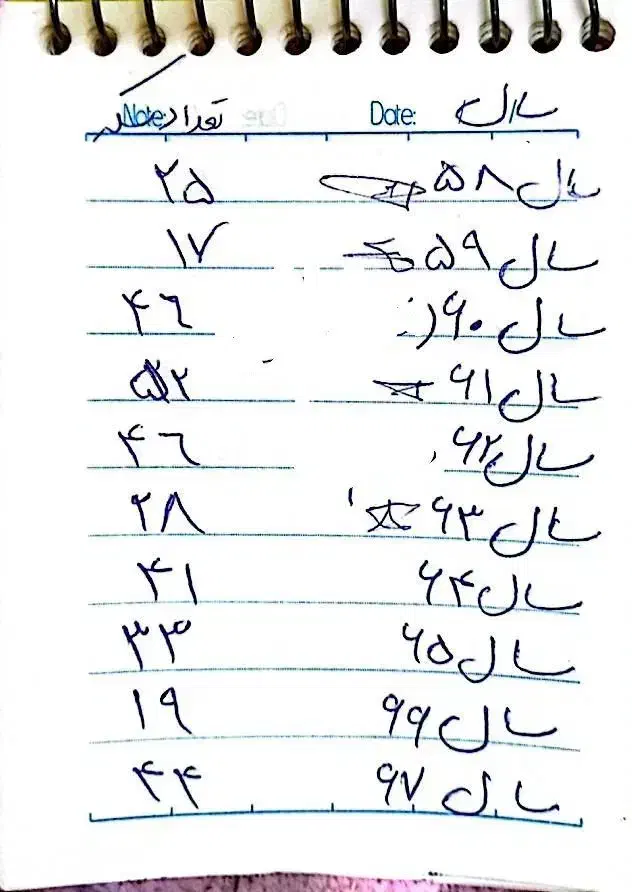 سال Date: تعداد سکه Note:
سال ۵۸ ۲۵
سال ۵۹ ۱۷
سال ۶۰ ۴۶
سال ۶۱ ۵۲
سال ۶۲ ۴۶
سال ۶۳ ۲۸
سال ۶۴ ۴۱
سال ۶۵ ۳۳
سال ۶۶ ۱۹
سال ۶۷ ۴۴